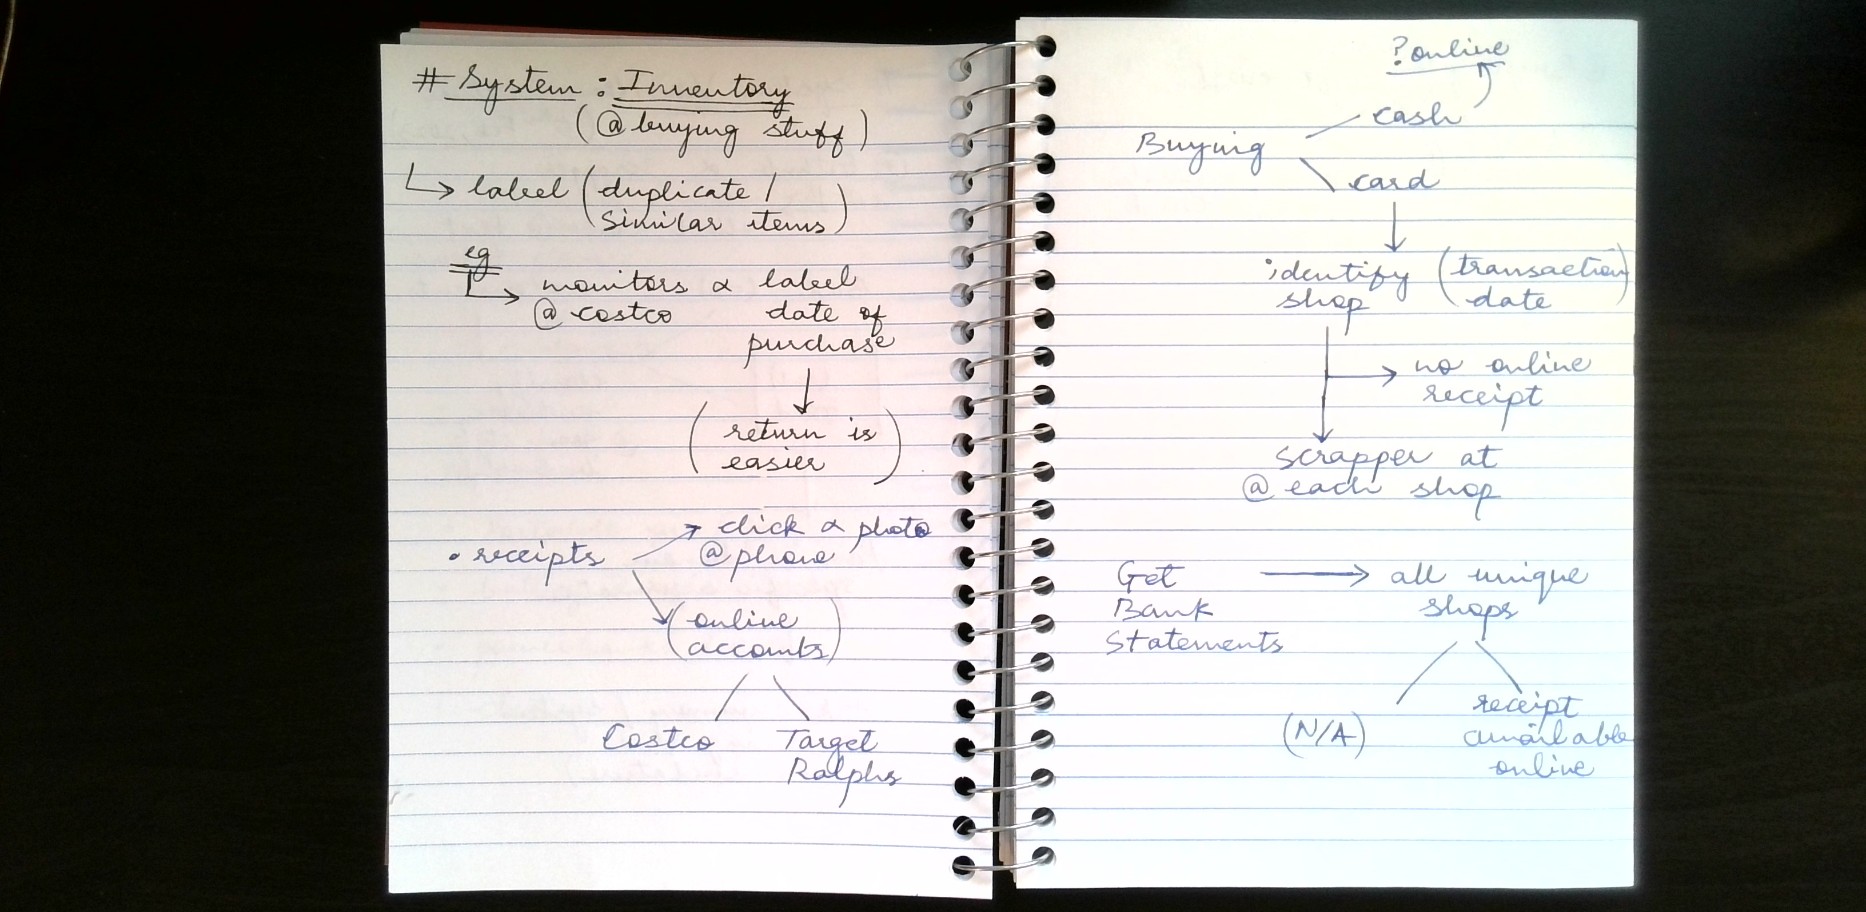 # System : Inventory
(@ buying stuff)
↳ label (duplicate /
similar items)
eg
↳ monitors & label
@ costco date of
purchase
↓
(return is
easier)
• receipts → click & photo
@ phone
↘ (online
accounts)
Costco Target
Ralphs
? online
cash
Buying
card
↓
identify (transaction
shop date)
→ no online
receipt
↓
scrapper at
@ each shop
Get → all unique
Bank shops
Statements
receipt
(N/A) available
online